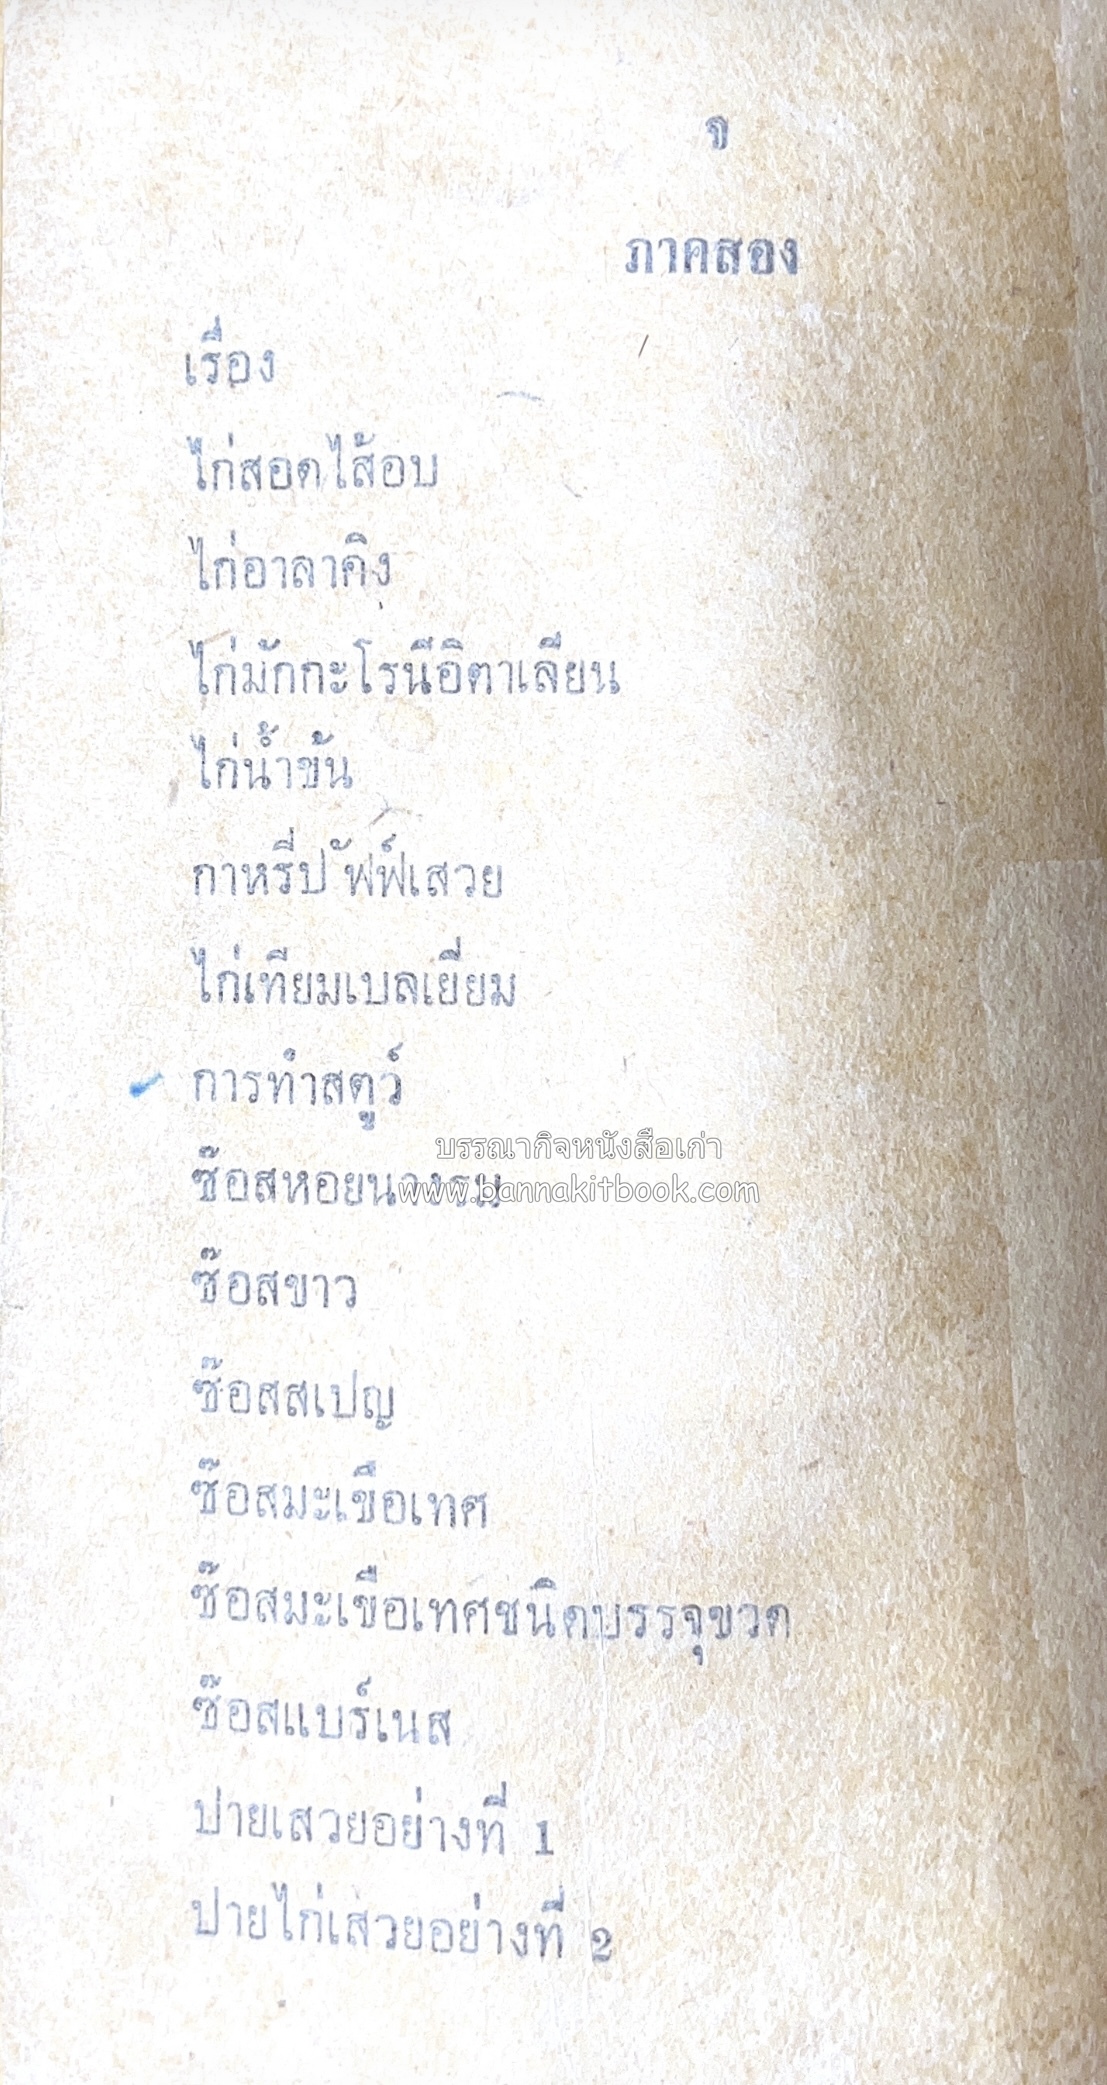 จ
ภาคสอง
เรื่อง
ไก่สอดไส้อบ
ไก่อาลาคิง
ไก่มักกะโรนีอิตาเลียน
ไก่น้ำข้น
กาหรี่ปัฟฟ์เสวย
ไก่เทียมเบลเยี่ยม
การทำสตูว์
บรรณากิจหนังสือเก่า
ซ๊อสหอยนางรม
www.bannakitbook.com
ซ๊อสขาว
ซ๊อสสเปญ
ซ๊อสมะเขือเทศ
ซ๊อสมะเขือเทศชนิดบรรจุขวด
ซ๊อสแบร์เนส
ปายเสวยอย่างที่ 1
ปายไก่เสวยอย่างที่ 2